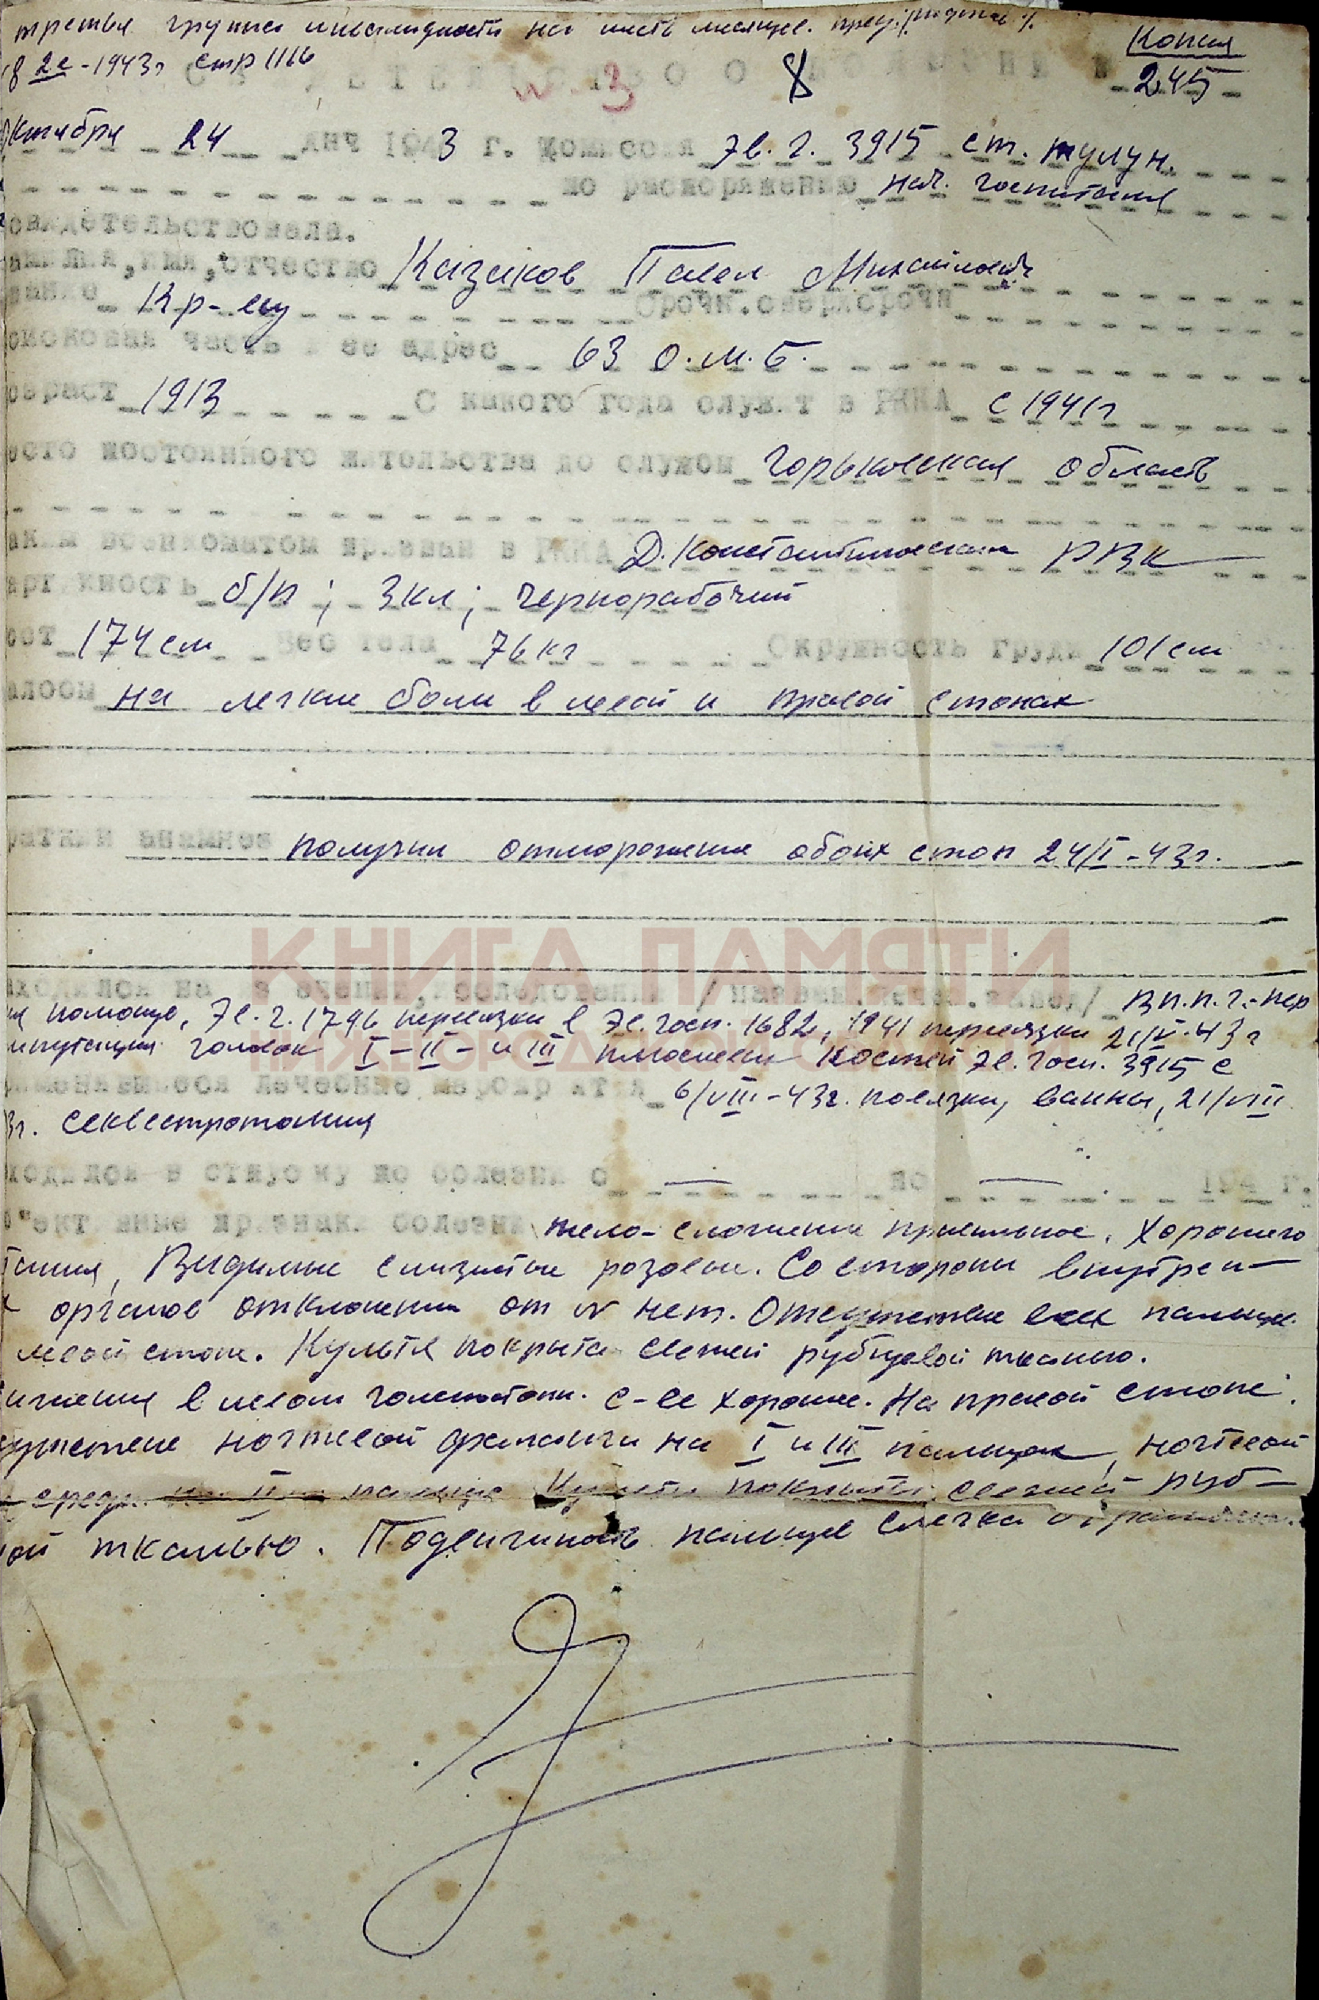 третья группа инвалидности на шесть месяцев.
Копия
18 26 - 1943г стр 1166
СВИДЕТЕЛЬСТВО О БОЛЕЗНИ N 245
N 3 8
Октября 24 дня 1943 г. Комиссия Эв. г. 3915 ст. тулун.
по распоряжению нач. госпиталя
свидетельствовала.
амилия, имя, отчество Казаков Павел Михайлович
вание Кр-ец Срочн. сверхсрочн
оисковая часть и ее адрес 63 О.М.Б.
озраст 1913 С какого года служит в РККА с 1941г
есто постоянного жительства до службы Горьковская область
аким военкоматом призван в РККА Д. Константиновским РВК
арт ийность б/п; 3 кл; чернорабочий
ост 174 см Вес тела 76 кг Окружность груди 101 см
алобы на легкие боли в левой и правой стопах
раткий анамнез получил отморожение обоих стоп 24/I-43г.
КНИГА ПАМЯТИ
НИЖЕГОРОДСКОЙ
аходился на лечении, исследовании / В П.П.Г.-пер
ая помощь, Эв. г. 1796 перевязки в Эв. госп. 1682, 1941 перевязки 21/IV-43г
ампутация головок I-II- и III плюсневых костей Эв. госп. 3915 с
рименявшиеся лечебные мероприятия 6/VIII-43г. повязки, ванны, 21/VIII
3г. секвестротомия
ходился в отпуску по болезни с — по — 194 г.
объективные признаки болезни тело-сложение правильное. Хорошего
тания, Видимые слизистые розовы. Со стороны внутрен-
х органов отклонении от N нет. Отсутствие всех пальцев
левой стопы. Культя покрыта свежей рубцевой тканью.
ижения в левом голеностопн. с-ве хорошие. На правой стопе
сутствие ногтевой фаланги на I и III пальцах, ногтевой
и средн. на II пальце Культи покрыты свежей руб-
ой тканью. Подвижность пальцев слегка ограничена.